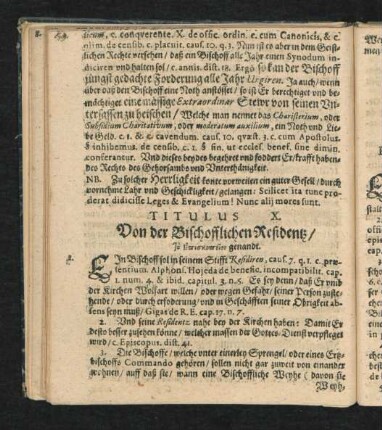 dicum, c. conquerente. X. de offic. ordin. c. cum Canonicis, & c.
olim. de censib. c. placuit. caus. 10. q. 3. Nun ist er aber in dem Geist-
lichen Rechte versehen / daß ein Bischoff alle Jahr einen Synodum in-
diciren und halten sol / c. annis. dist. 18. Ergò so kan der Bischoff
jüngst gedachte Forderung alle Jahr Urgiren. Ja auch / wenn
über das den Bischoff eine Noth anstösset / so ist Er berechtiget und be-
mächtiget eine mässige Extraordinar Stewr von seinen Un-
tersassen zu heischen / Welche man nennet das Charisterium, oder
Subsidium Charitativum, oder moderatum auxilium, ein Noth und Lie-
be Geld. c. 1. & c. cavendum. caus. 10. quæst. 3. c. cum Apostolus.
§ inhibemus. de censib. c. 1. § fin. ut eccles. benef. sine dimin.
conferantur. Und dieses beydes begehret und foddert Er / krafft haben-
des Rechts des Gehorsambs und Unterthänigkeit.
NB. Zu solcher Herrligkeit konte vorweilen ein guter Gesell / durch
vornehme Zahr und Geschickligkeit / gelangen: Scilicet ita tunc pro-
derat didicisse Leges & Evangelium! Nunc alij mores sunt.
TITULUS X.
Von der Bischofflichen Residentz /
genandt.
EIn Bischoff sol in seinem Stifft Residiren, caus. 7. q. 1. c. præ-
sentium. Alphons. Hojeda de benefic. incompatibilit. cap.
1. num. 4. & ibid. capitul. 3. n. 5. Es sey denn / daß Er umb
der Kirchen Wolfart willen / oder wegen Gefahr / seiner Person zuste-
hende / oder durch erfoderung / und in Geschäfften seiner Obrigkeit ab-
sens seyn muß / Gigas de R. E. cap. 17. n. 7.
2. Und seine Residentz nahe bey der Kirchen haben: Damit Er
desto besser zusehen könne / welcher massen der Gottes-Dienst verpfleget
wird / c. Episcopus. dist. 41.
3. Die Bischoffe / welche unter einerley Sprengel / oder eines Ertz-
bischoffs Commando gehören / sollen nicht gar zuweit von einander
wohnen / auff daß sie / wann eine Bischoffliche Weyhe (davon sie
Weyh,